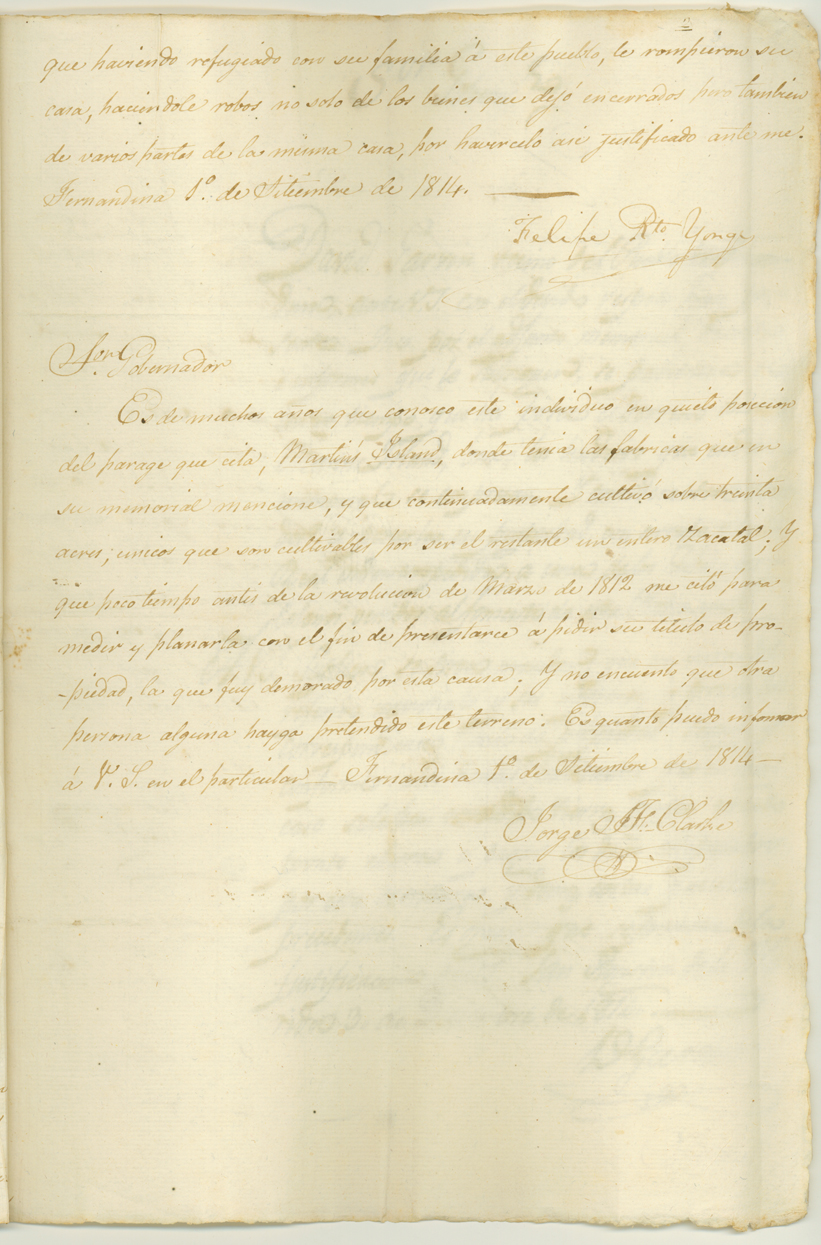 2
que haviendo refugiado con su familia á este pueblo, le rompieron su
casa, haciendole robos no solo de los bienes que dejó encerrados pero tambien
de varios partes de la misma casa, por havercelo asi justificado ante me.
Fernandina 1º. de Sitiembre de 1814.
Felipe Rto. Yonge
Sor. Gobernador
Es de muchos años que conosco este individuo en quieto posecion
del parage que cita, Martin's Island, donde tenia las fabricas que en
su memorial mencione, y que continuadamente cultivó sobre treinta
acres, unicos que son cultivables por ser el restante un entero Zacatal; Y
que poco tiempo antes de la revolucion de Marzo de 1812 me citó para
medir y planarla con el fin de presentarce á pidir su titulo de pro-
-piedad, la que fuy demorado por esta causa; Y no encuento que otra
persona alguna hayga pretendido este terreno. Es quanto puedo informar
á V. S. en el particular — Fernandina 1º. de Sitiembre de 1814 —
Jorge J. F. Clarke